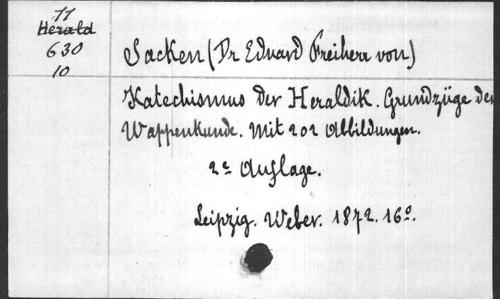 77
Herald
630
10
Sacken (Dr Eduard Freiherr von)
Katechismus der Heraldik. Grundzüge der
Wappenkunde. Mit 202 Abbildungen.
2e Auflage.
Leipzig. Weber. 1872. 16º.